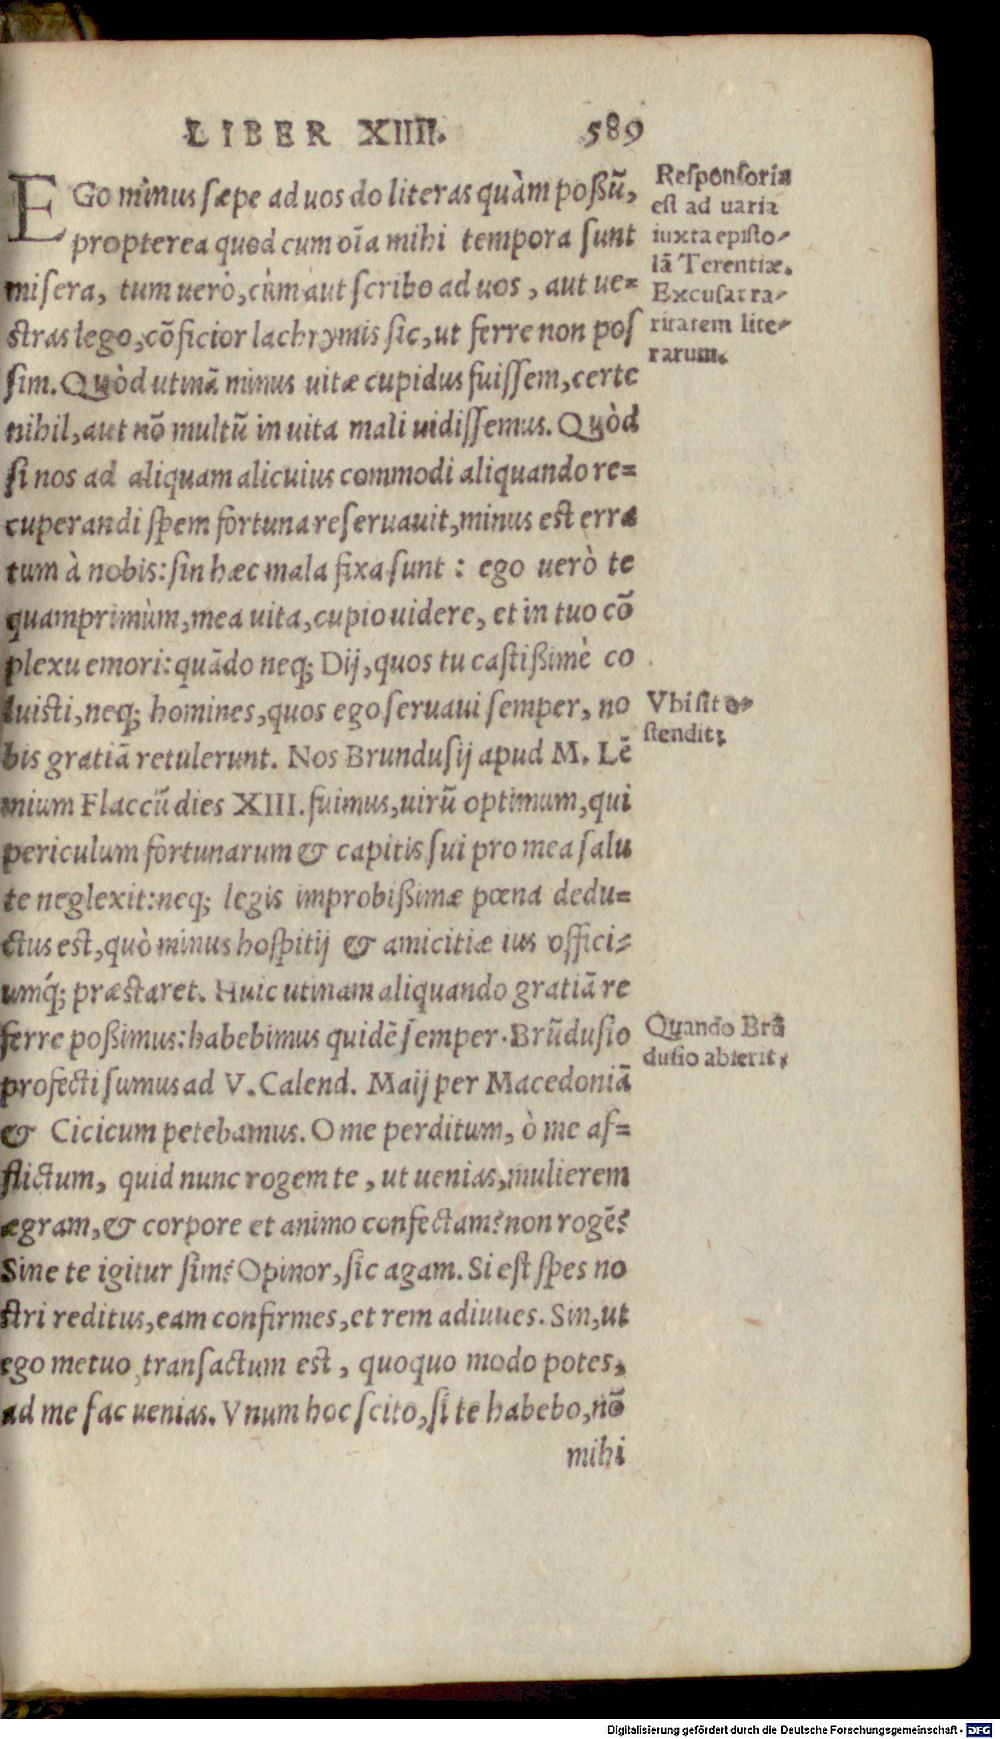 LIBER XIIII. 589
EGo minus sæpe ad uos do literas quàm possũ,
propterea quod cum oĩa mihi tempora sunt
misera, tum uerò, cùm aut scribo ad uos, aut ue=
stras lego, cõficior lachrymis sic, ut ferre non pos
sim. Quòd utinã minus uitæ cupidus fuissem, certe
nihil, aut nõ multũ in uita mali uidissemus. Quòd
si nos ad aliquam alicuius commodi aliquando re=
cuperandi spem fortuna reseruauit, minus est erra
tum à nobis: sin hæc mala fixa sunt: ego uerò te
quamprimùm, mea uita, cupio uidere, et in tuo cõ
plexu emori: quãdo neq; Dij, quos tu castissimè co
luisti, neq; homines, quos ego seruaui semper, no
bis gratiã retulerunt. Nos Brundusij apud M. Lẽ
nium Flaccũ dies XIII. fuimus, uirũ optimum, qui
periculum fortunarum & capitis sui pro mea salu
te neglexit: neq; legis improbissimæ pœna dedu=
ctus est, quò minus hospitij & amicitiæ ius offici=
umq́; præstaret. Huic utinam aliquando gratiã re
ferre possimus: habebimus quidẽ semper. Brũdusio
profecti sumus ad V. Calend. Maij per Macedoniã
& Cicicum petebamus. O me perditum, ò me af=
flictum, quid nunc rogem te, ut uenias, mulierem
ægram, & corpore et animo confectam? non rogẽ?
Sine te igitur sim? Opinor, sic agam. Si est spes no
stri reditus, eam confirmes, et rem adiuues. Sin, ut
ego metuo, transactum est, quoquo modo potes,
ad me fac uenias. Vnum hoc scito, si te habebo, nõ
mihi
Responsoria
est ad uaria
iuxta episto-
lã Terentiæ.
Excusat ra-
ritatem lite-
rarum.
Vbi sit o-
stendit;
Quando Brũ
dusio abierit;
Digitalisierung gefördert durch die Deutsche Forschungsgemeinschaft - DFG